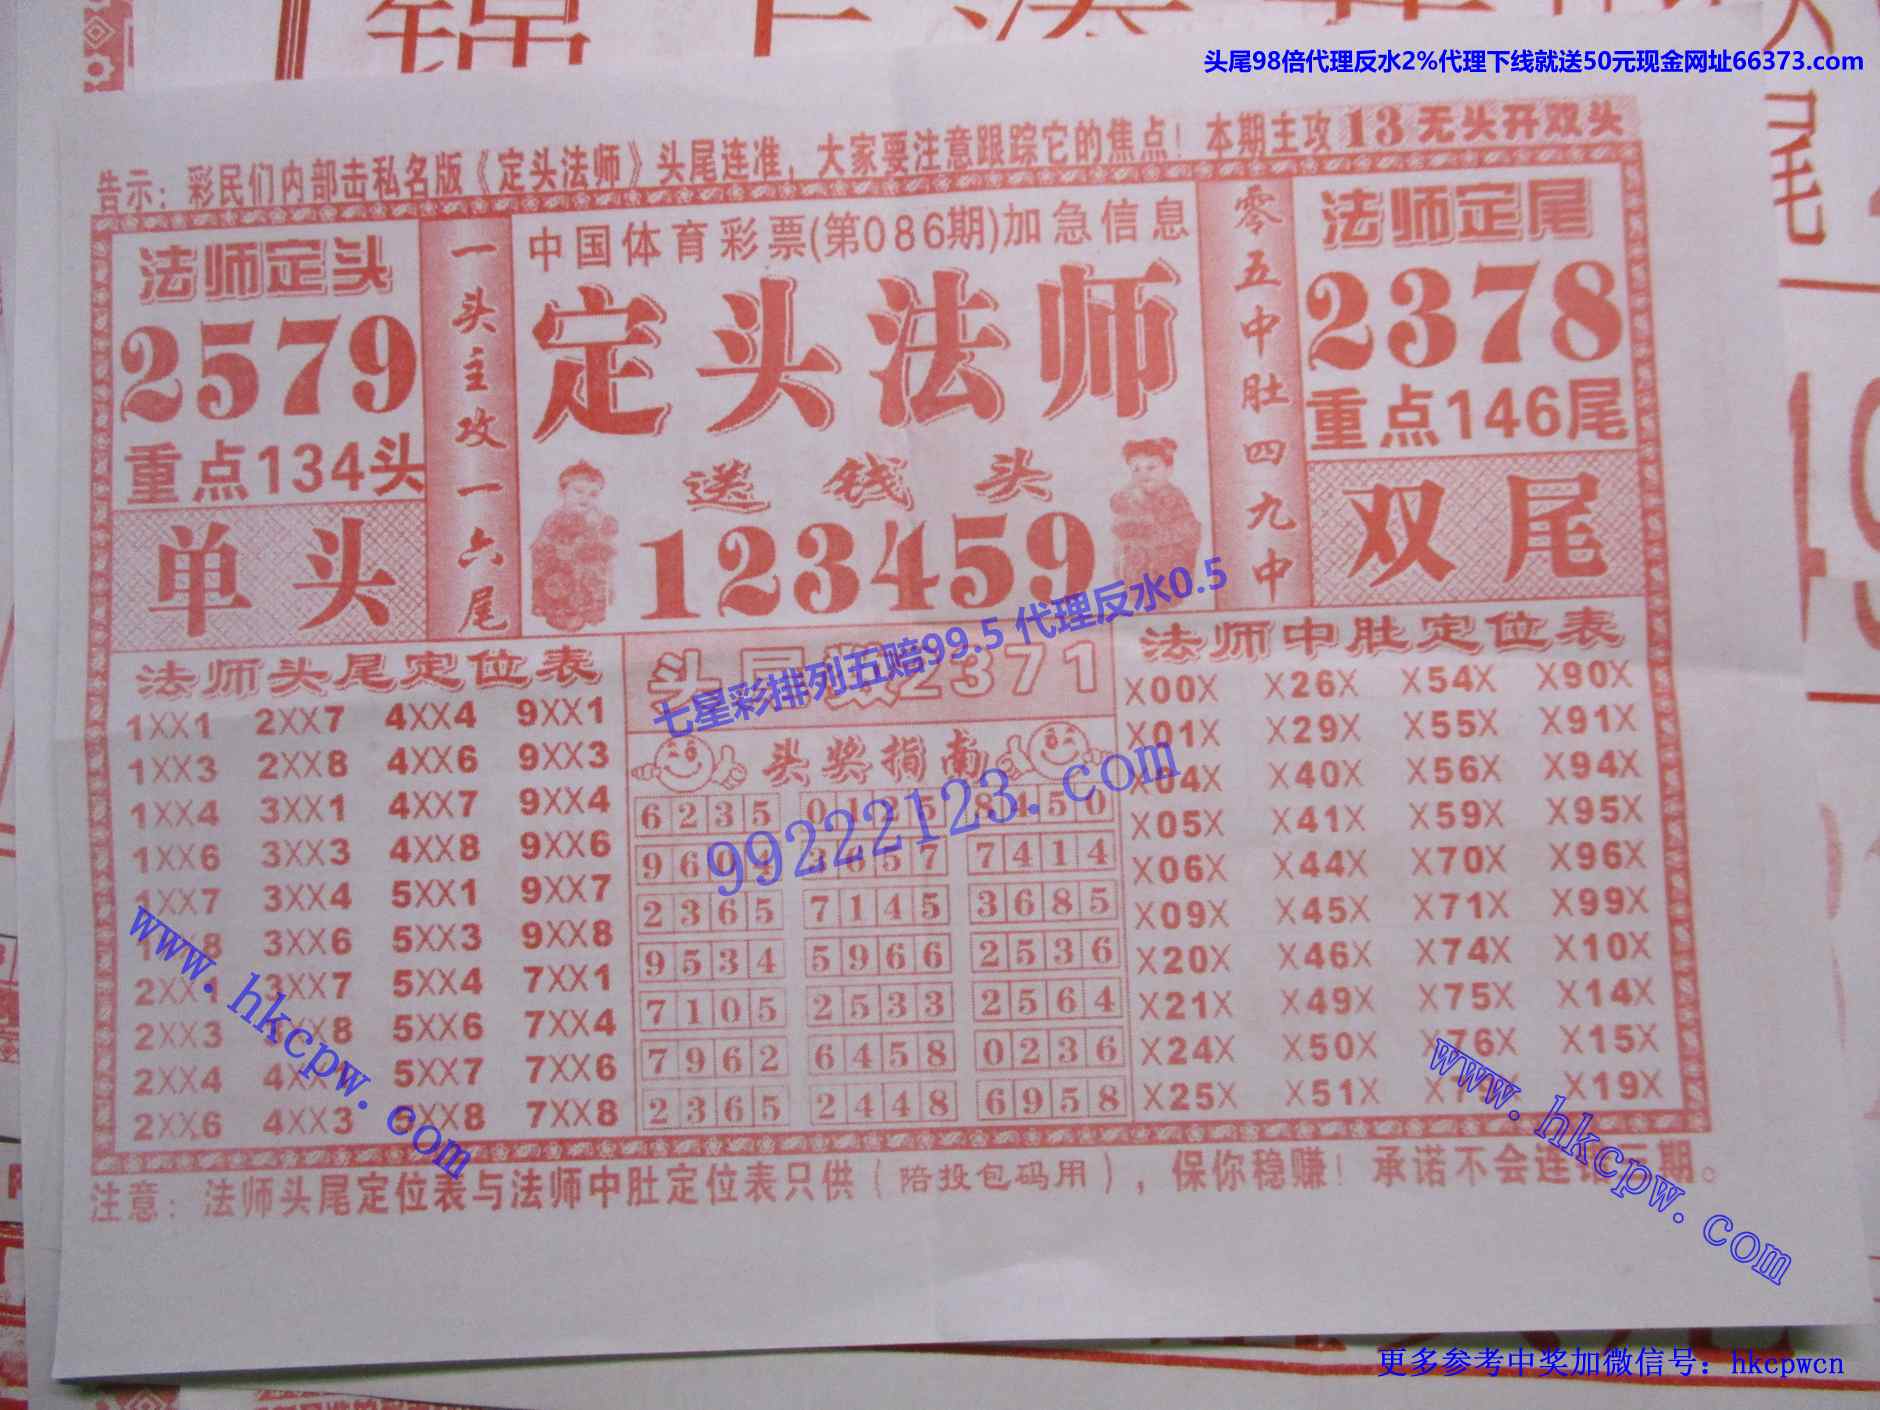 头尾98倍代理反水2%代理下线就送50元现金网址66373.com
告示：彩民们内部击私名版《定头法师》头尾连准，大家要注意跟踪它的焦点！本期主攻13无头开双头
法师定头
2579
重点134头
单头
一头主攻一六尾
中国体育彩票(第086期)加急信息
定头法师
送钱头
123459
零五中肚四九中
法师定尾
2378
重点146尾
双尾
法师头尾定位表
1XX1 2XX7 4XX4 9XX1
1XX3 2XX8 4XX6 9XX3
1XX4 3XX1 4XX7 9XX4
1XX6 3XX3 4XX8 9XX6
1XX7 3XX4 5XX1 9XX7
3XX6 5XX3 9XX8
2XX1 3XX7 5XX4 7XX1
2XX3 5XX6 7XX4
2XX4 5XX7 7XX6
2XX6 4XX3 5XX8 7XX8
2371
七星彩排列五赔99.5 代理反水0.5
头奖指南
99222123.com
6235 0125 8450
3657 7414
2365 7145 3685
9534 5966 2536
7105 2533 2564
7962 6458 0236
2365 2448 6958
法师中肚定位表
X00X X26X X54X X90X
X01X X29X X55X X91X
X04X X40X X56X X94X
X05X X41X X59X X95X
X06X X44X X70X X96X
X09X X45X X71X X99X
X20X X46X X74X X10X
X21X X49X X75X X14X
X24X X50X X76X X15X
X25X X51X X19X
www.hkcpw.com
www.hkcpw.com
注意：法师头尾定位表与法师中肚定位表只供（陪投包码用），保你稳赚！承诺不会连错三期。
更多参考中奖加微信号：hkcpwcn